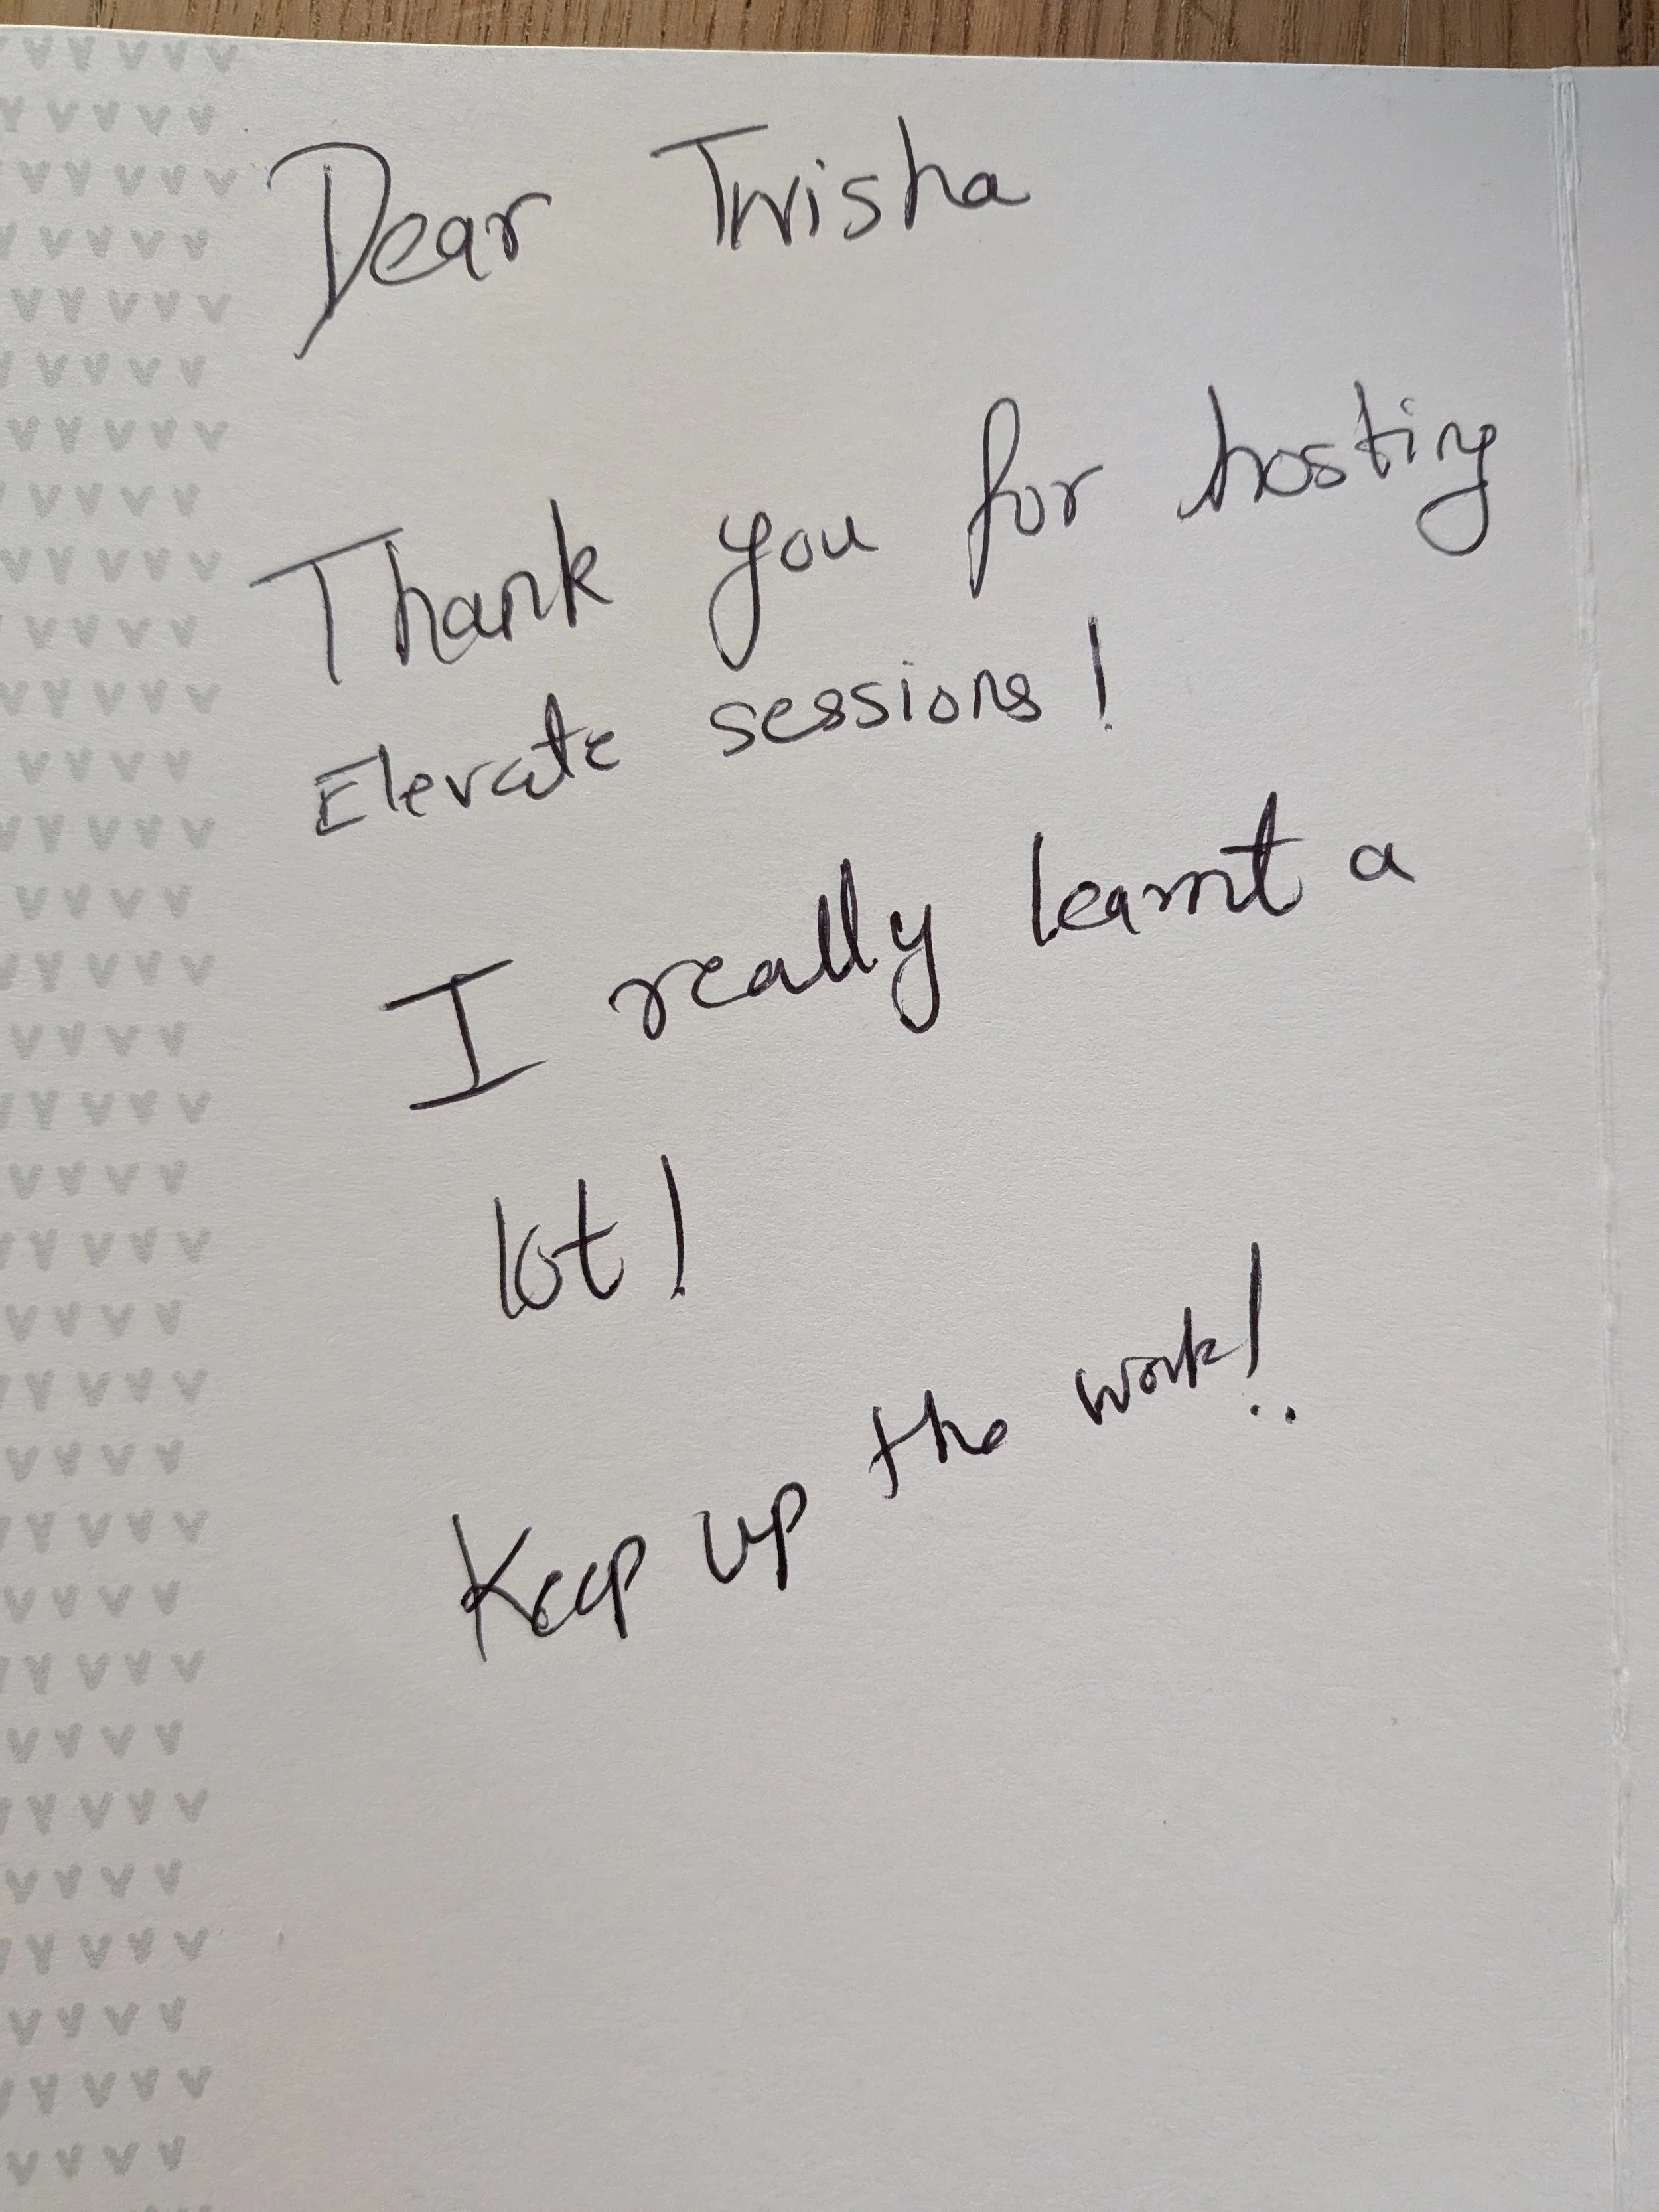 Dear Twisha
Thank you for hosting
Elevate sessions!
I really learnt a
lot!
Keep up the work!..